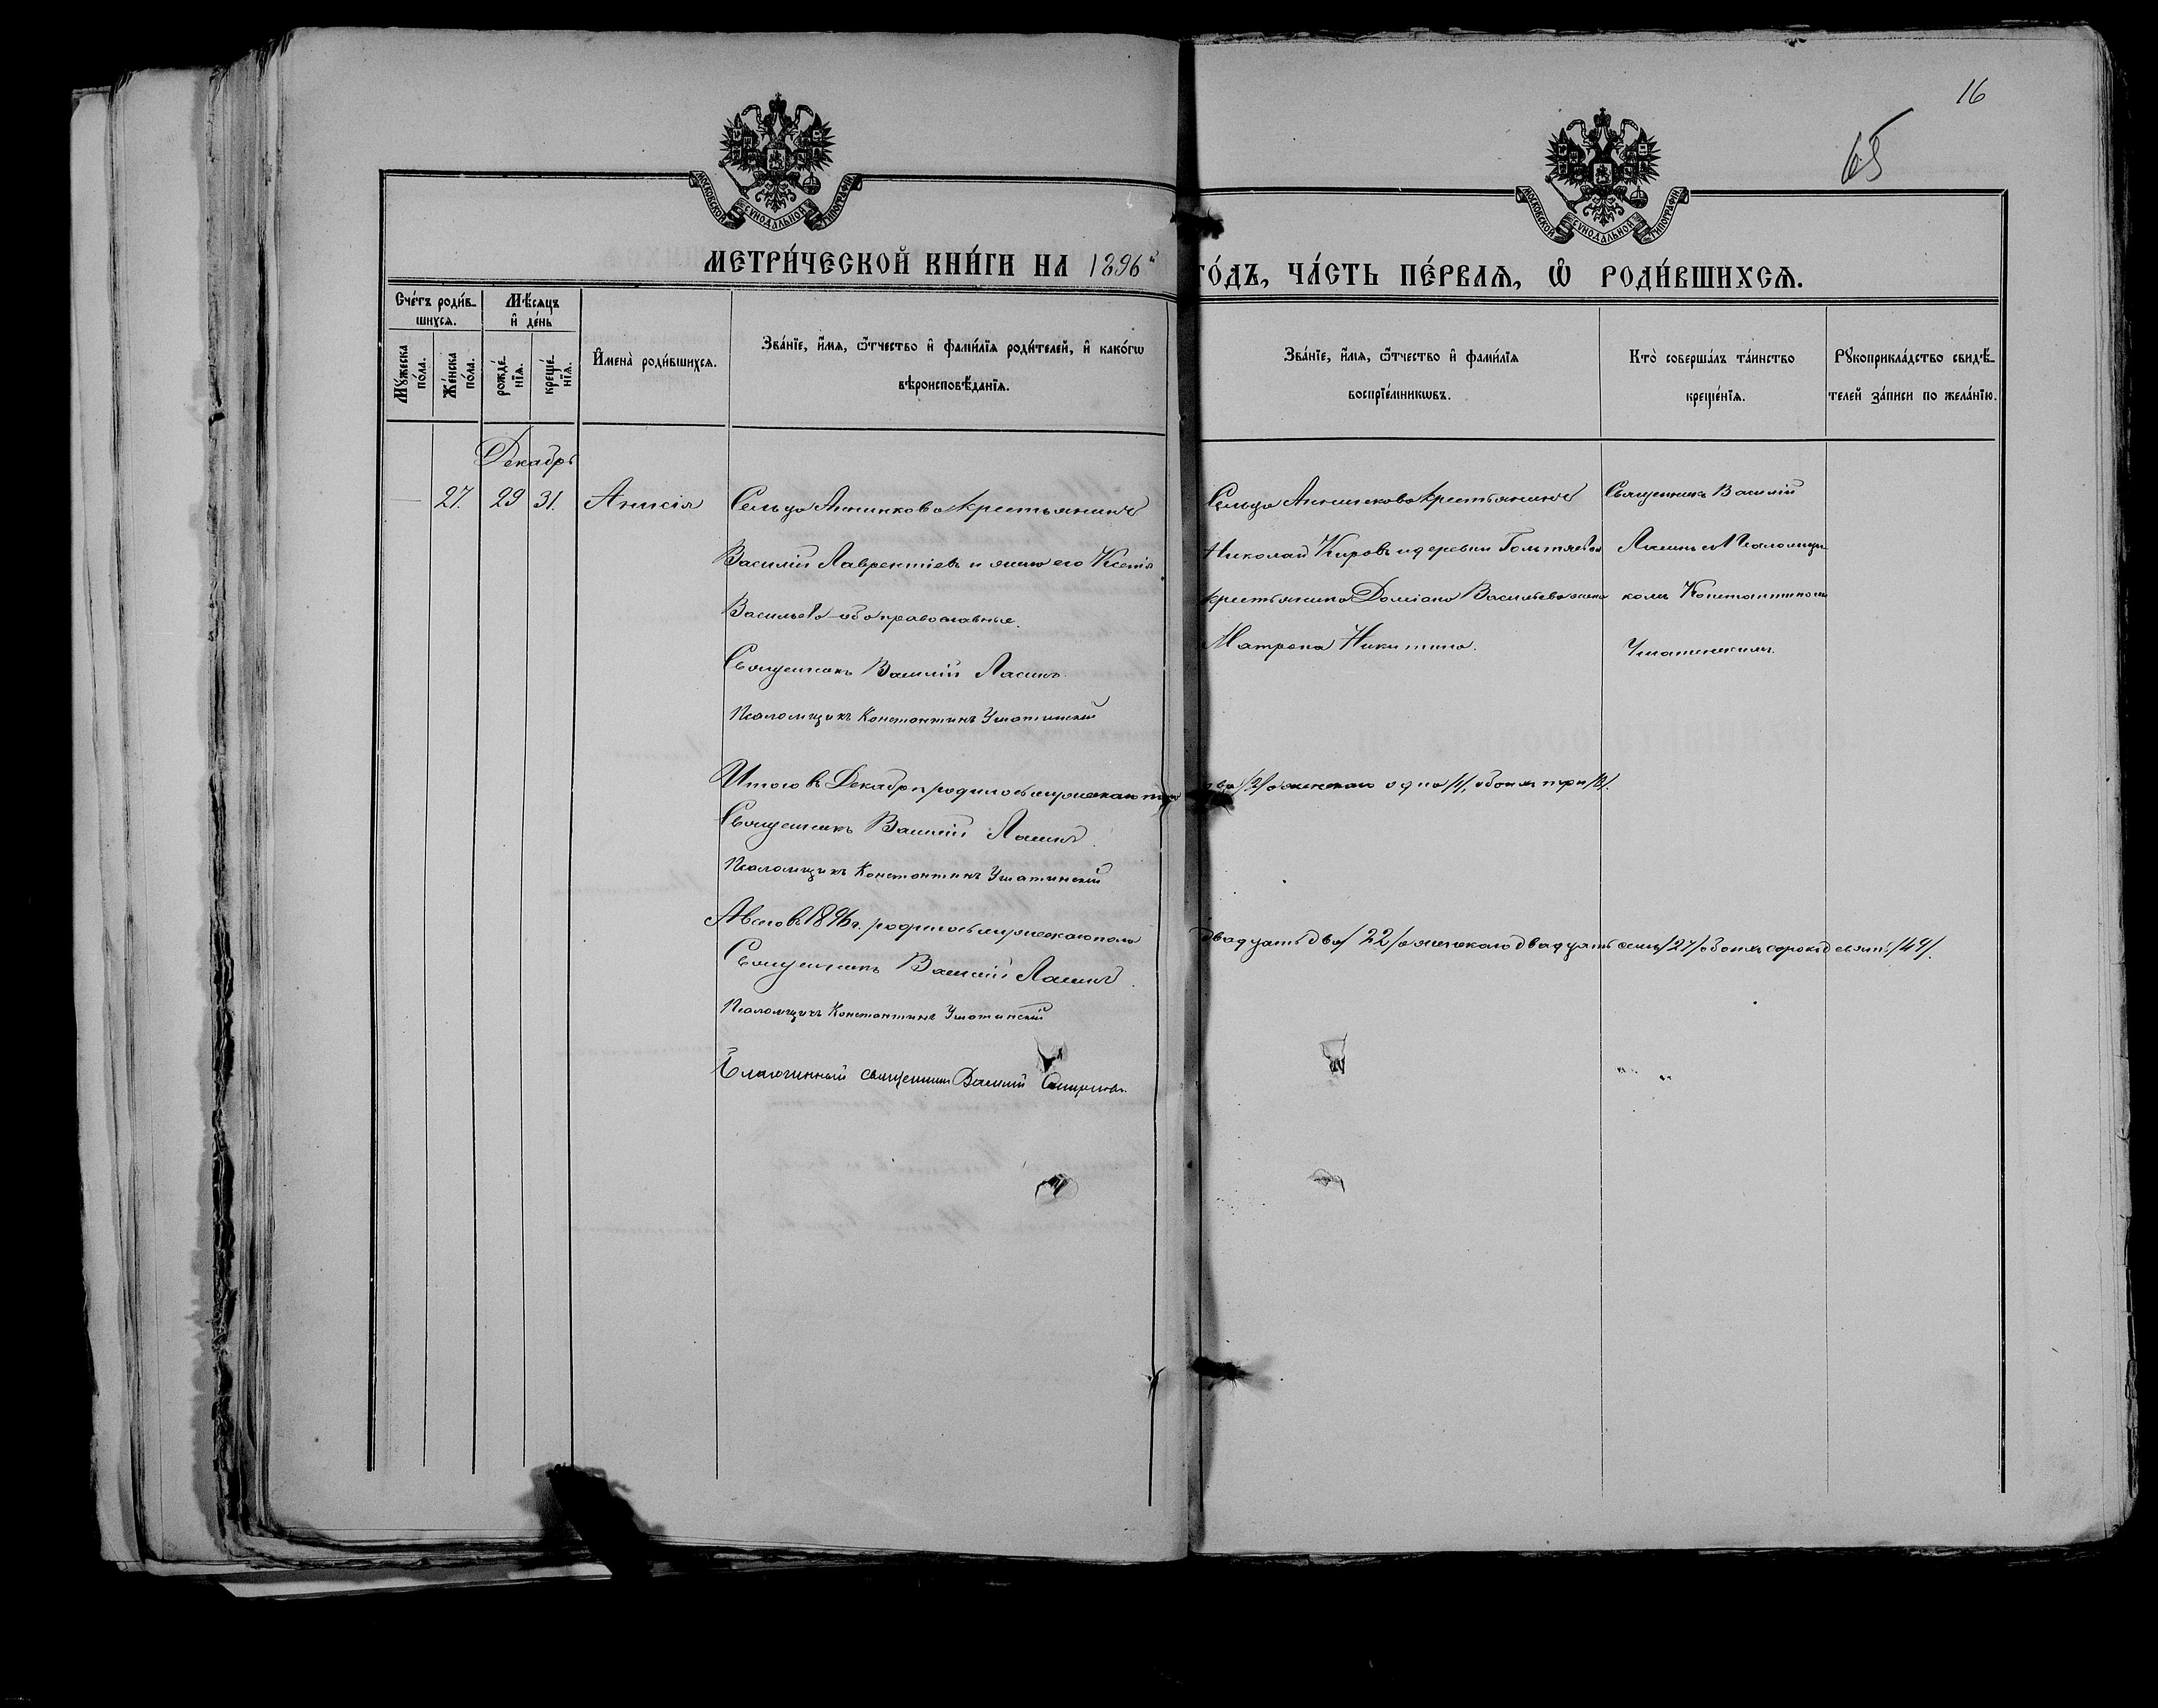 16
65
МОСКОВСКОЙ СѴНОДАЛЬНОЙ ТИПОГРАФІИ
МОСКОВСКОЙ СѴНОДАЛЬНОЙ ТИПОГРАФІИ
МЕТРИ́ЧЕСКОЙ КНИ́ГИ НА 1896й ГО́ДЪ, ЧА́СТЬ ПЕ́РВАѦ, Ѽ РОДИ́ВШИХСѦ.
Сче́тъ роди́вшихсѧ.
Мꙋ́жеска по́ла.
Же́нска по́ла.
Мѣ́сѧцъ и҆ де́нь
рожде́нїѧ.
креще́нїѧ.
И҆мена̀ роди́вшихсѧ.
Зва́нїе, и҆́мѧ, ѻ҆́тчество и҆ фами́лїѧ роди́телей, и҆ како́гѡ
вѣроисповѣ́данїѧ.
Зва́нїе, и҆́мѧ, ѻ҆́тчество и҆ фами́лїѧ
воспрїе́мникѡвъ.
Кто̀ соверша́лъ та́инство
креще́нїѧ.
Рꙋкоприкла́дство свидѣ́телей за́писи по жела́нїю.
Декабрь
27. 29 31. Анисія
Сельца Аннинкова крестьянинъ
Василій Лаврентіевъ и жена его Ксенія
Васильева - оба православные.
Священникъ Василій Лашинъ
Псаломщикъ Константинъ Ушатинскій
Сельца Аннинкова крестьянинъ
Николай Кировъ и деревни
крестьянина Даміана Васильева жена
Матрона Никитина.
Священникъ Василій
Лашинъ и Псаломщи-
комъ Константиномъ
Ушатинскимъ.
Итого въ Декабрѣ родилось мужескаго пола два /2/ женскаго одна /1/, обоихъ три /3/.
Священникъ Василій Лашинъ.
Псаломщикъ Константинъ Ушатинскій
А всего въ 1896 г. родилось мужескаго пола двадцать два /22/ а женскаго двадцать семь /27/ обоихъ сорокъ девять /49/.
Священникъ Василій Лашинъ.
Псаломщикъ Константинъ Ушатинскій
Благочинный священникъ Василій Смирновъ.